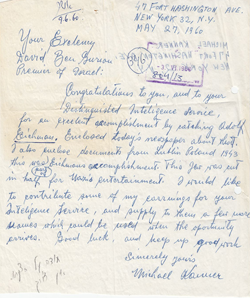 47 FORT WASHINGTON AVE.
NEW YORK 32, N.Y.
MAY 27, 1960
Your Exelency
David Ben Gurion
Premier of Israel:
Congratulations to you, and to your
Distinguished Inteligence Service,
for an excelent accomplishment by catching Adolf
Eichman. Enclosed today's newspaper about that.
I also enclose documents from Lublin Poland 1943
this was Eichmans accomplishment This Jew was cut
in half for Nazis entertainment. I would like
to contribute some of my earnings for your
Inteligence Service, and supply to them a few more
names which could be used when the oportunity
arrives. Good luck, and keep up good work
Sincerely yours
Michael